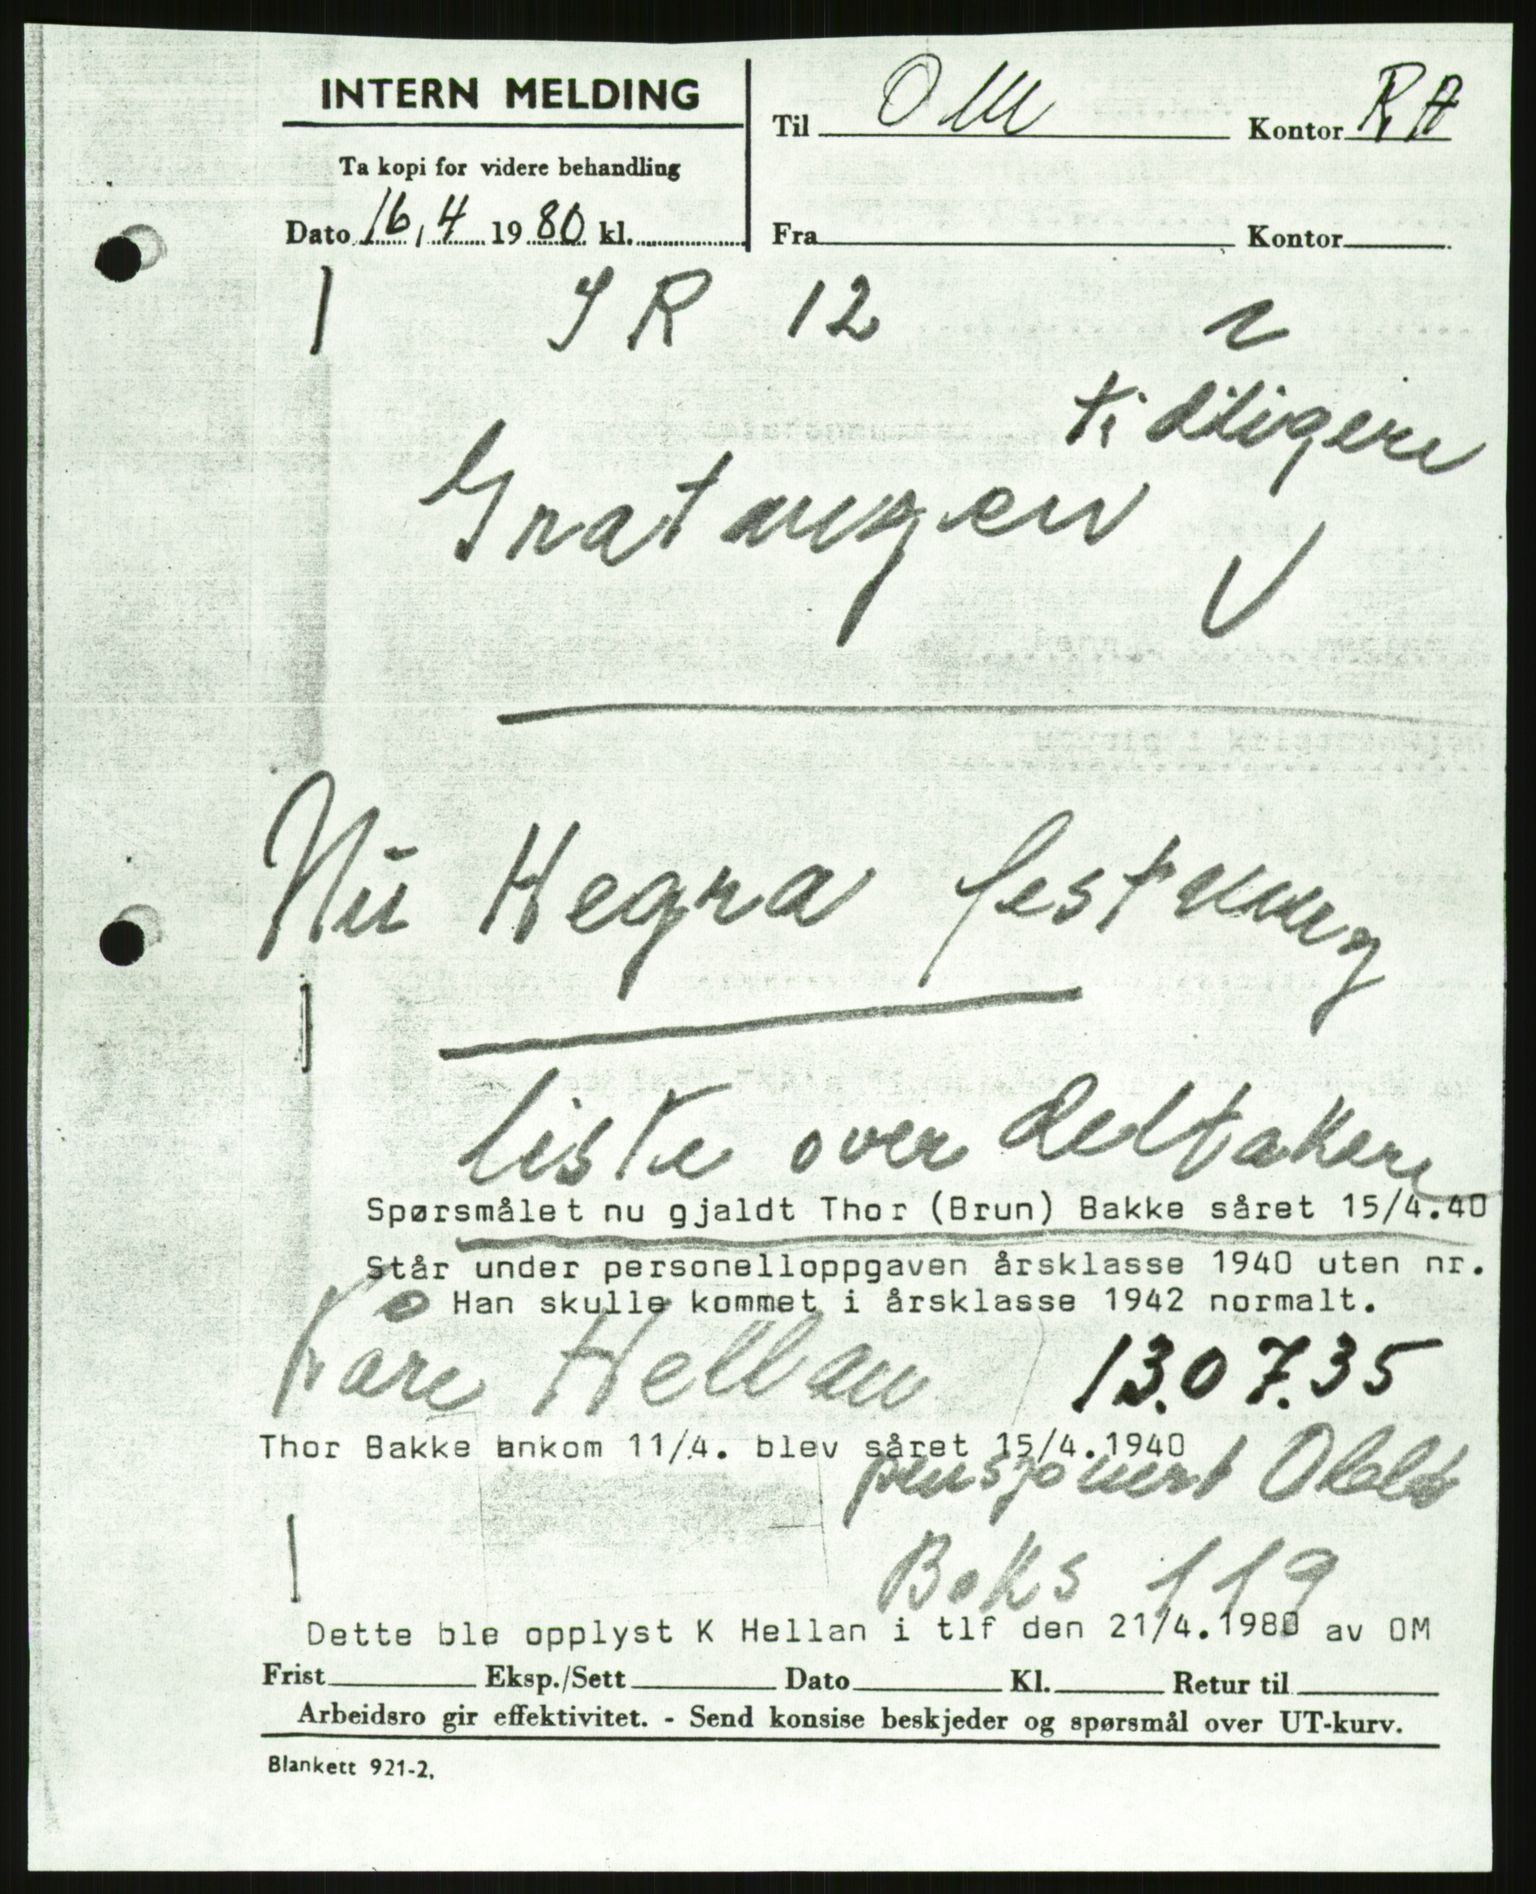 INTERN MELDING
Ta kopi for videre behandling
Dato 16.4 1980 kl.
Til OM Kontor RA
Fra Kontor
IR 12
tidligere
Gratangen
Nu Hegra festning
liste over deltakere
Spørsmålet nu gjaldt Thor (Brun) Bakke såret 15/4.40
Står under personelloppgaven årsklasse 1940 uten nr.
Han skulle kommet i årsklasse 1942 normalt.
Kåre Hellan 13.07.35
Thor Bakke ankom 11/4. blev såret 15/4.1940
pensjonert
Boks 119
Dette ble opplyst K Hellan i tlf den 21/4.1980 av OM
Frist Eksp./Sett Dato Kl. Retur til
Arbeidsro gir effektivitet. - Send konsise beskjeder og spørsmål over UT-kurv.
Blankett 921-2.